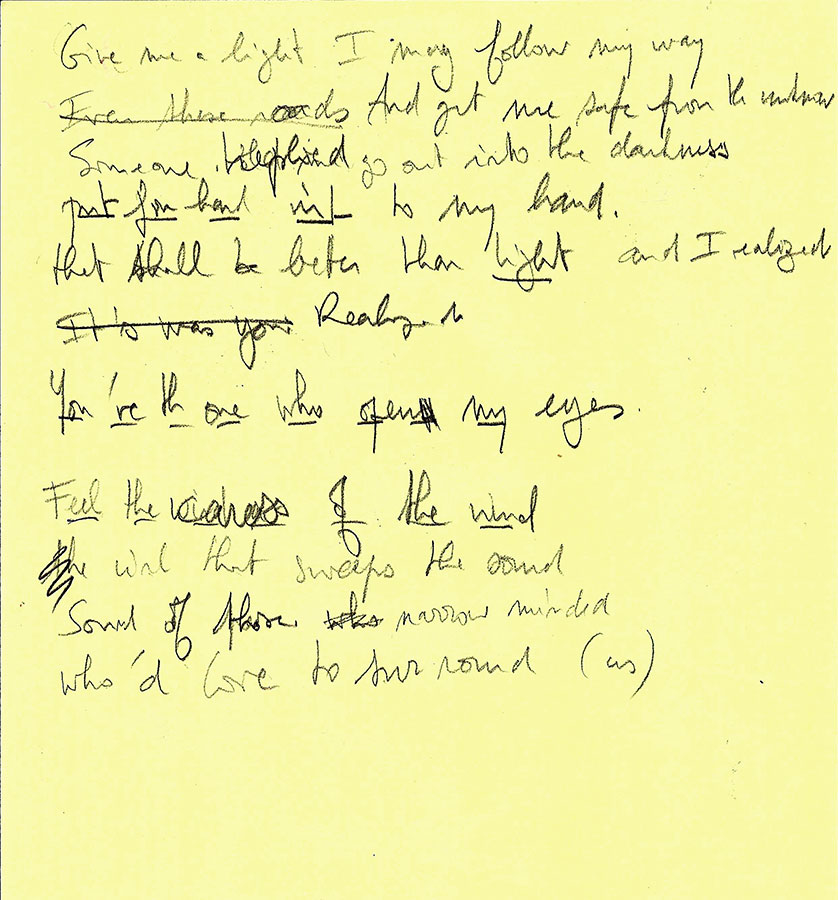 Give me a light I may follow my way
Even these roads And get me safe from the unknown
Someone replied go out into the darkness
put your hand int to my hand.
that shall be better than light and I realized
It's was you Realize
You 're th one who open my eyes.
Feel the of the wind
the wind that sweeps the sound
Sound of those who narrow minded
who'd love to surround (us)